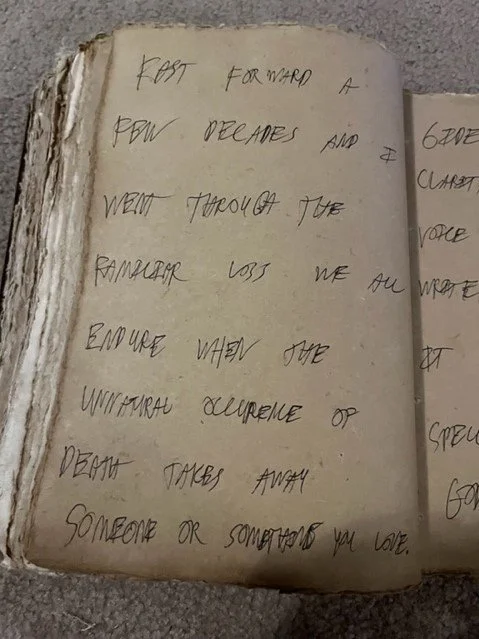 FAST FORWARD A
FEW DECADES AND I
WENT THROUGH THE
FAMILIAR LOSS WE ALL
ENDURE WHEN THE
UNNATURAL OCCURENCE OF
DEATH TAKES AWAY
SOMEONE OR SOMETHING YOU LOVE.
SIDE
CLARIT
VOICE
WRITE
IT
SPECI
GOD